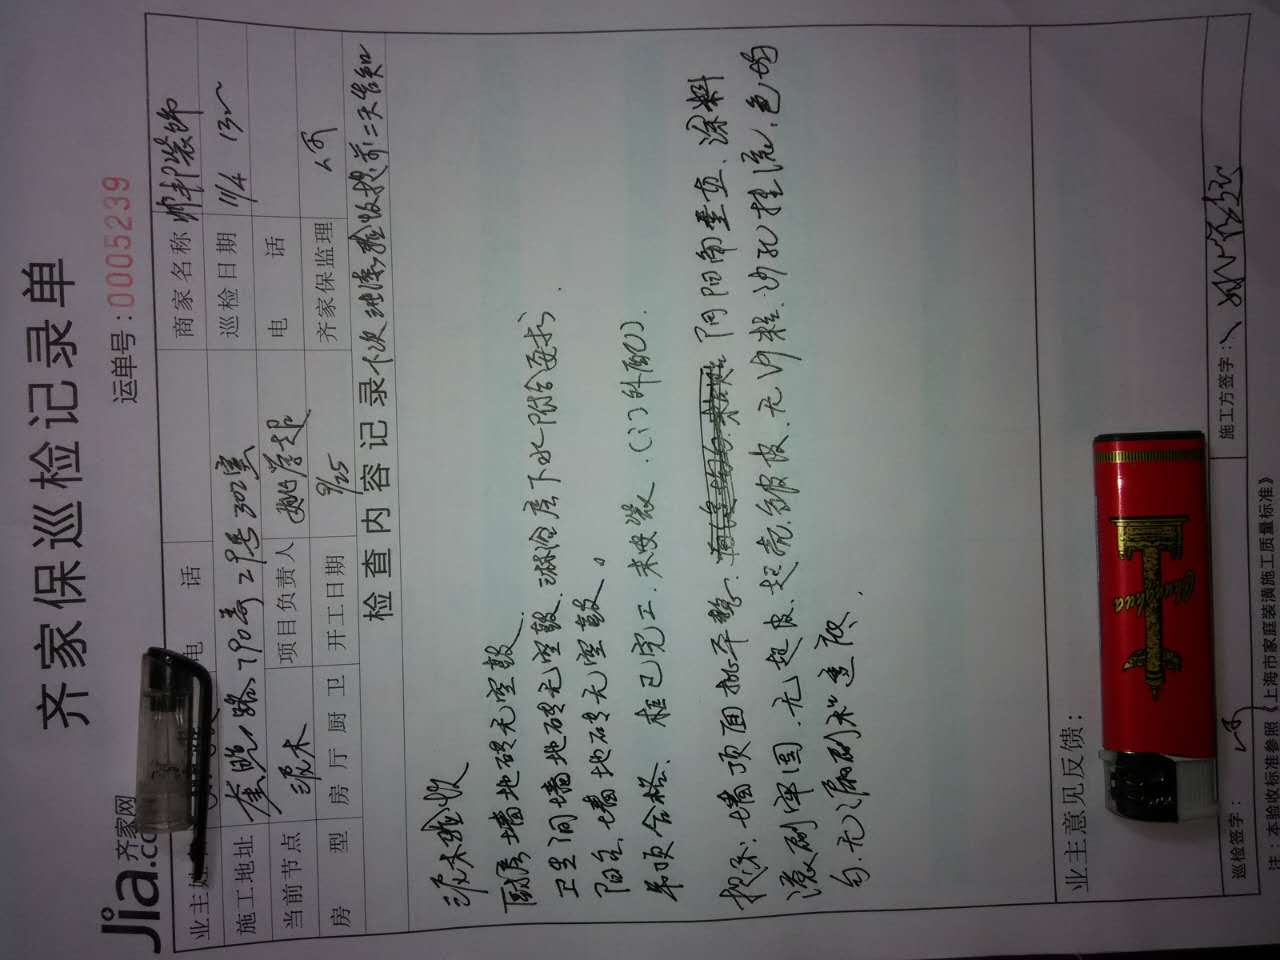 Jia.co 齐家网
齐家保巡检记录单
运单号:0005239
业主姓 电话 商家名称 帅邦装饰
施工地址 路790弄29号302室 巡检日期 11/4 13
当前节点 泥木 项目负责人 姚学起 电话
房型 房 厅 厨 卫 开工日期 9/25 齐家保监理
检查内容记录 下次油漆验收提前二天告知
泥木验收
厨房墙地砖无空鼓.
卫生间墙地砖无空鼓.淋浴房下水附合要求.
阳台.墙地砖无空鼓。
吊顶合格. 柜已完工.未安装.(门外配).
提示:墙顶面批平整. 阴阳角垂直、涂料
滚刷牢固.无起皮.起壳.皱皮.无沙粒.沙孔挂流.色均
匀.无漏刷和透底.
业主意见反馈:
巡检签字: 施工方签字:
注:本验收标准参照《上海市家庭装潢施工质量标准》
Chuashua